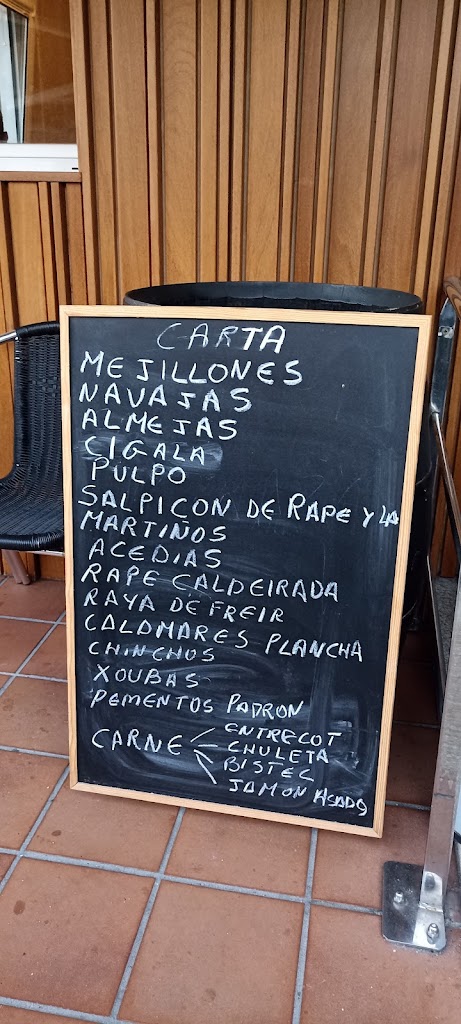 CARTA
MEJILLONES
NAVAJAS
ALMEJAS
CIGALA
PULPO
SALPICON DE RAPE Y LA
MARTIÑOS
ACEDIAS
RAPE CALDEIRADA
RAYA DE FREIR
CALOMARES PLANCHA
CHINCHOS
XOUBAS
PEMENTOS PADRON
ENTRECOT
CARNE CHULETA
BISTEC
JAMON ASADO